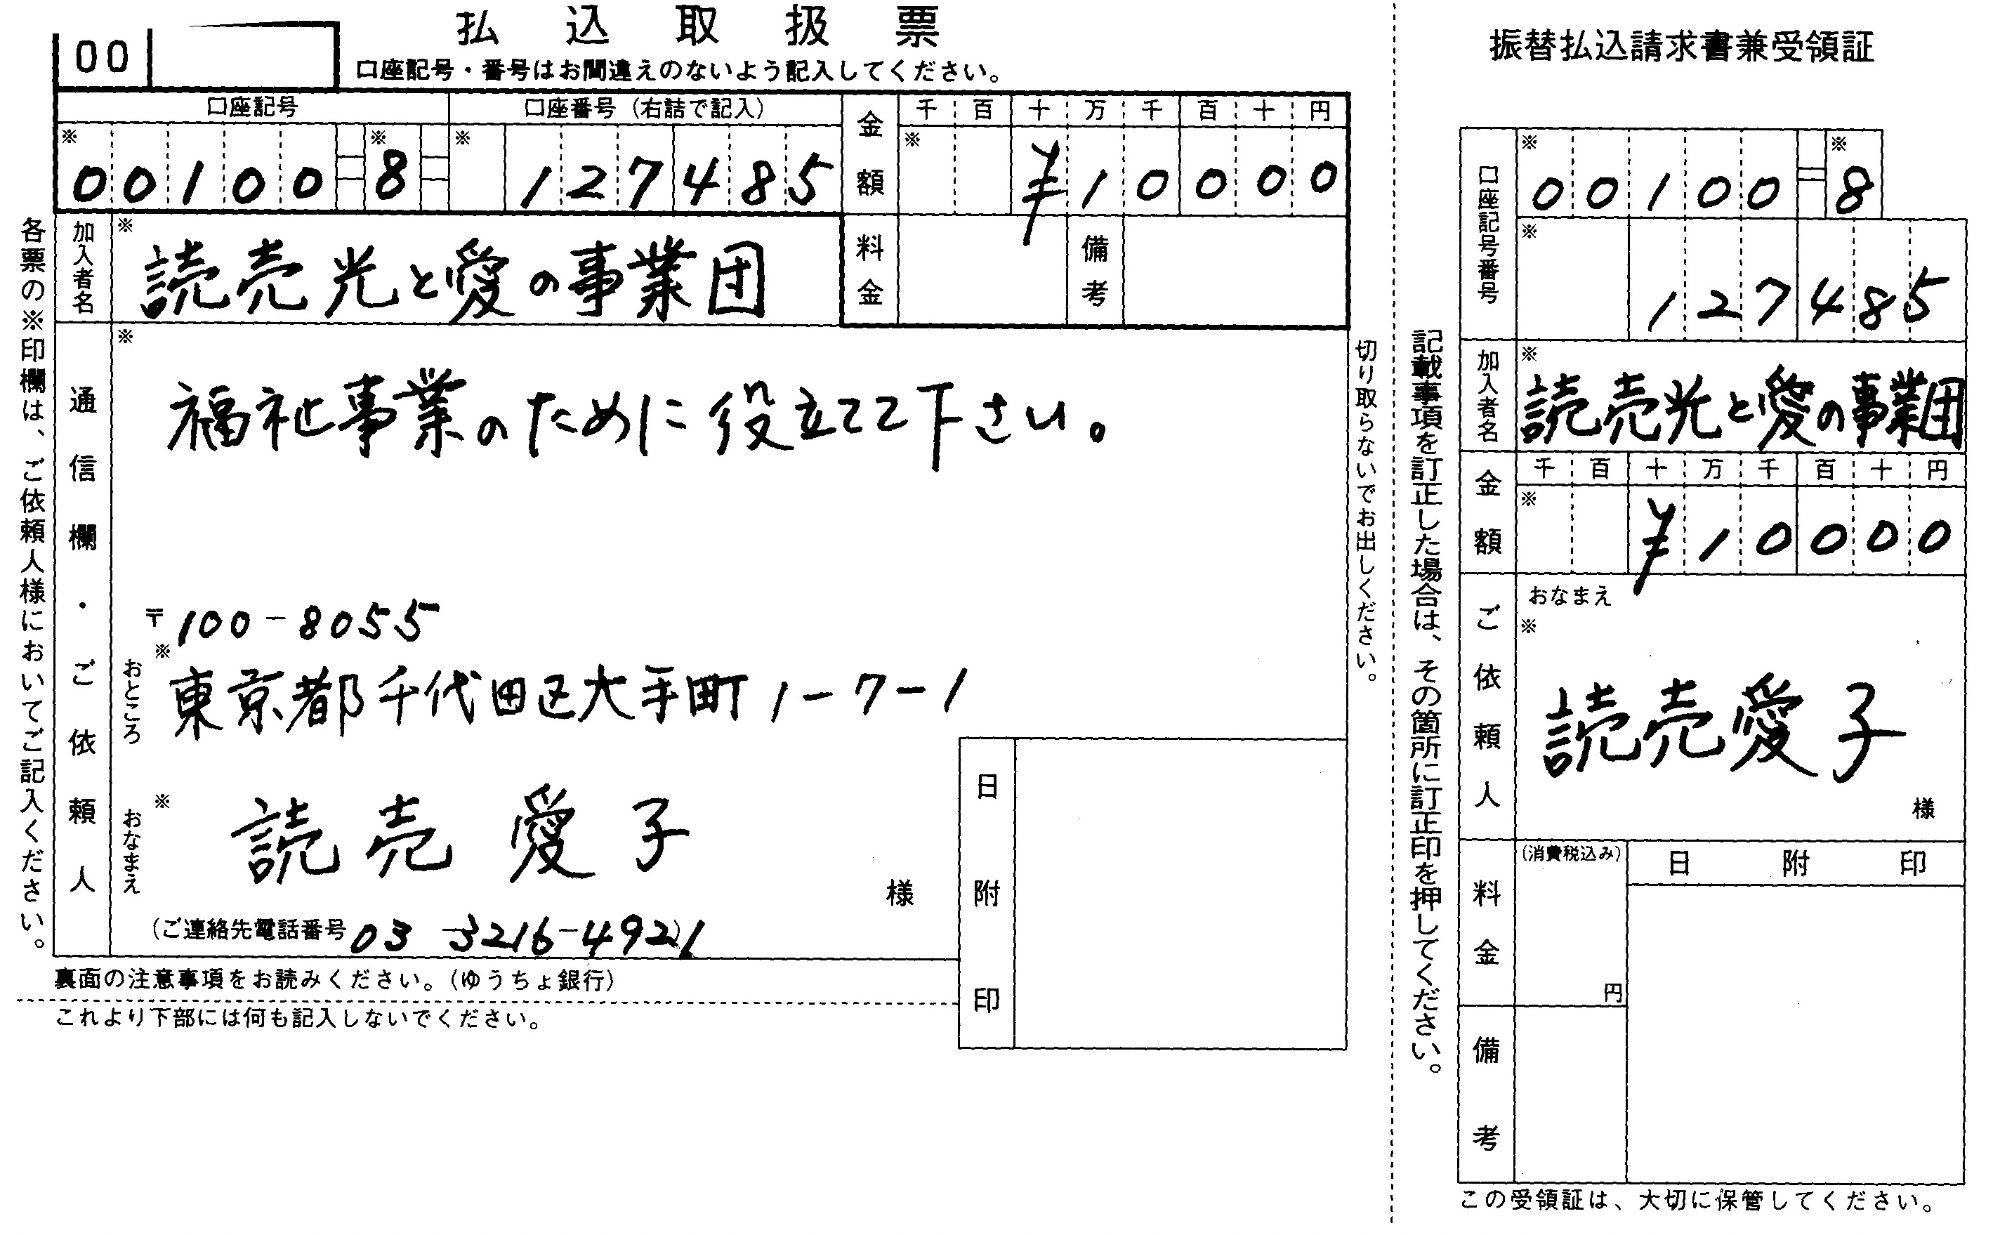 払込取扱票
00
口座記号・番号はお間違えのないよう記入してください。
口座記号
口座番号（右詰で記入）
金額
千 百 十 万 千 百 十 円
※ 00100 ※ 8 ※ 127485
※ ¥10000
加入者名
※ 読売光と愛の事業団
料金
備考
各票の※印欄は、ご依頼人様においてご記入ください。
通信欄・ご依頼人
※
福祉事業のために役立てて下さい。
〒100-8055
おところ
※ 東京都千代田区大手町1-7-1
おなまえ
※ 読売愛子
様
(ご連絡先電話番号 03-3216-4921)
日附印
裏面の注意事項をお読みください。(ゆうちょ銀行)
これより下部には何も記入しないでください。
切り取らないでお出しください。
記載事項を訂正した場合は、その箇所に訂正印を押してください。
振替払込請求書兼受領証
口座記号番号
※ 00100 ※ 8
※ 127485
加入者名
※ 読売光と愛の事業団
金額
千 百 十 万 千 百 十 円
※ ¥10000
ご依頼人
おなまえ
※
読売愛子
様
料金
(消費税込み)
円
日附印
備考
この受領証は、大切に保管してください。